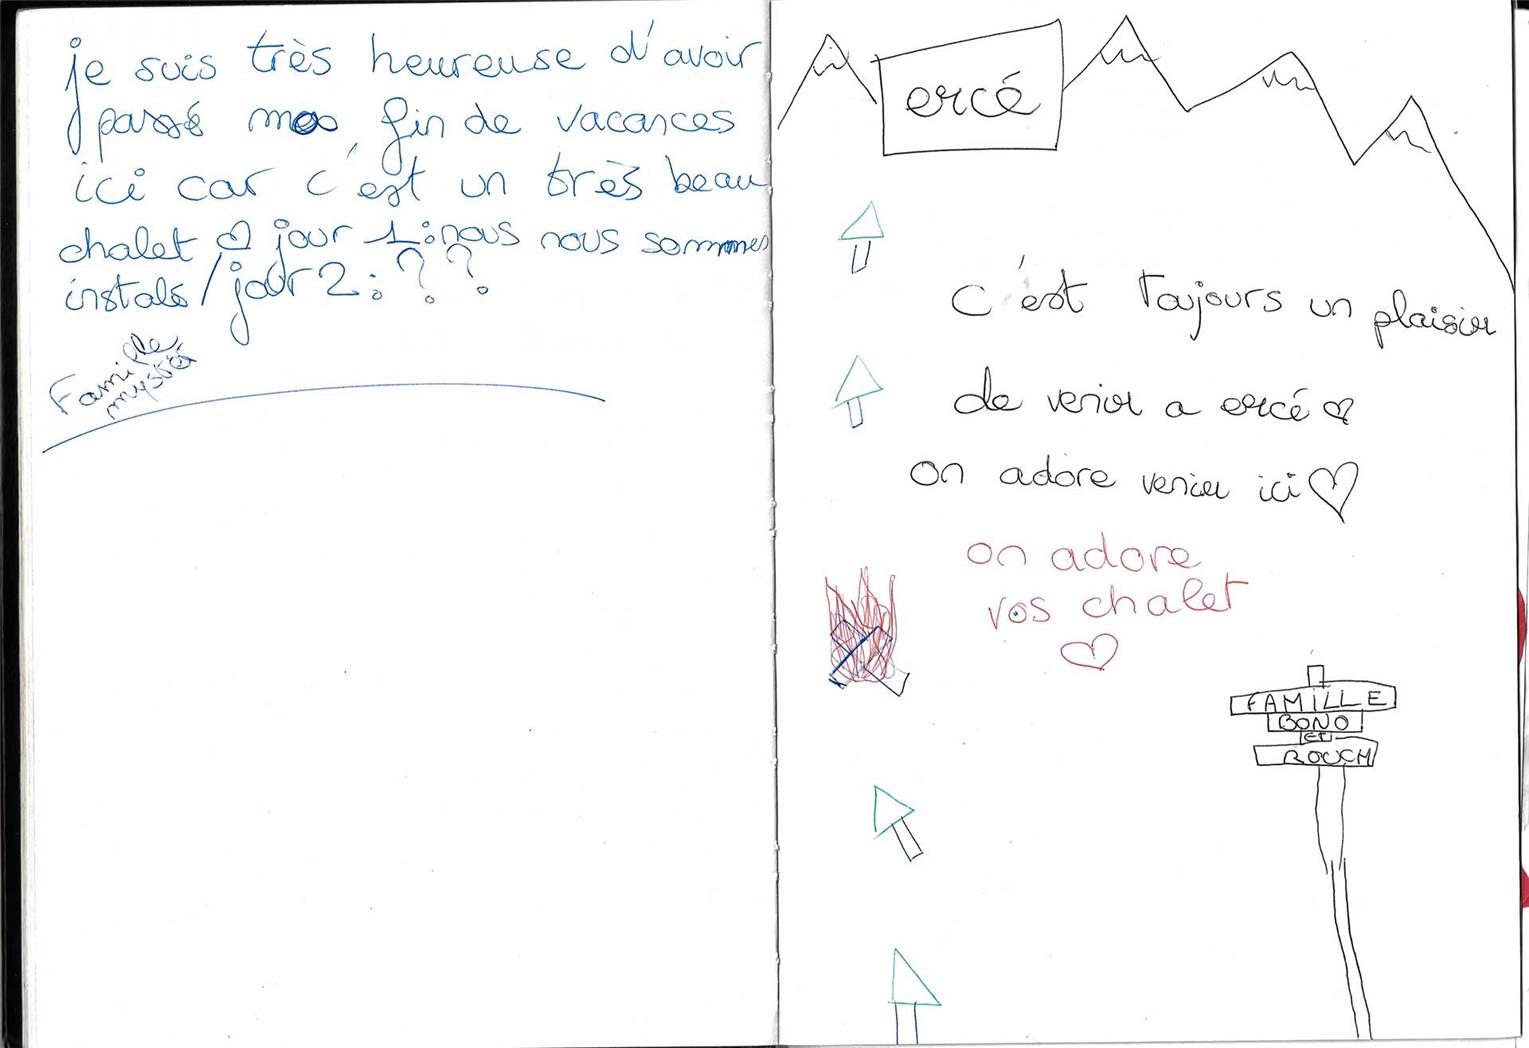 je suis très heureuse d'avoir
passé fin de vacances
ici car c'est un très beau
chalet jour 1 : nous nous sommes
instals / jour 2 : ? ?
Famille
mystè
ercé
C'est toujours un plaisir
de venir a ercé
on adore venir ici
on adore
vos chalet
FAMILLE
BONO
ET
ROUCH